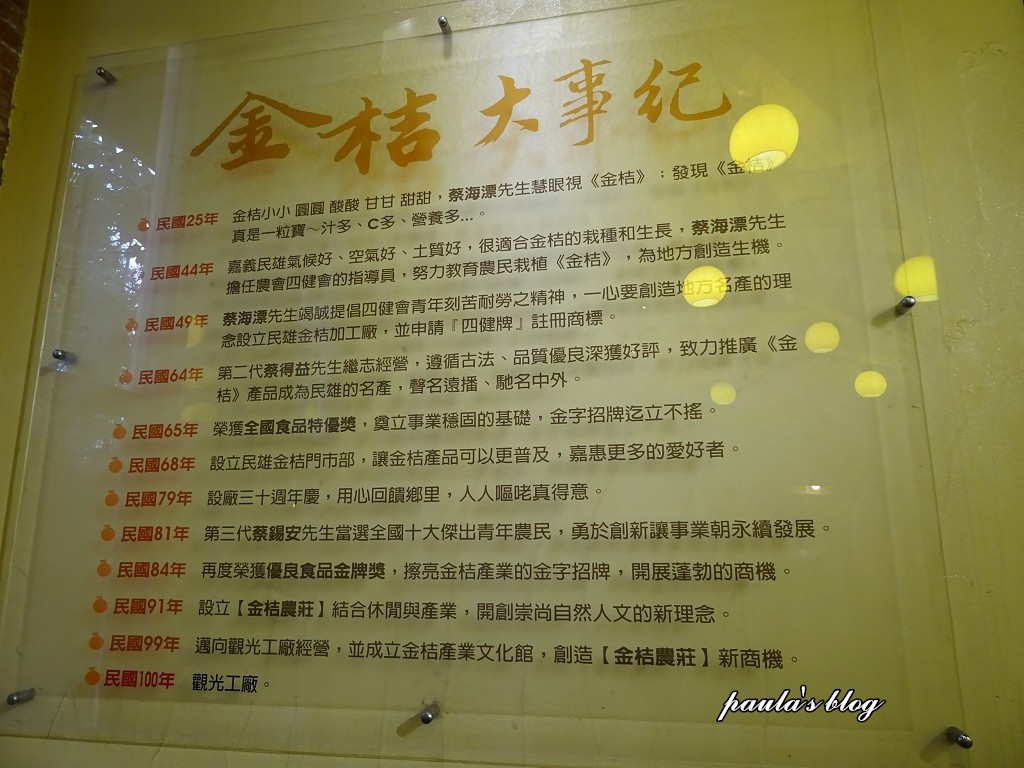 金桔大事紀
民國25年 金桔小小 圓圓 酸酸 甘甘 甜甜，蔡海漂先生慧眼視《金桔》：發現《金桔》
真是一粒寶～汁多、C多、營養多...。
民國44年 嘉義民雄氣候好、空氣好、土質好，很適合金桔的栽種和生長，蔡海漂先生
擔任農會四健會的指導員，努力教育農民栽植《金桔》，為地方創造生機。
民國49年 蔡海漂先生竭誠提倡四健會青年刻苦耐勞之精神，一心要創造地方名產的理
念設立民雄金桔加工廠，並申請『四健牌』註冊商標。
民國64年 第二代蔡得益先生繼志經營，遵循古法、品質優良深獲好評，致力推廣《金
桔》產品成為民雄的名產，聲名遠播、馳名中外。
民國65年 榮獲全國食品特優獎，奠立事業穩固的基礎，金字招牌迄立不搖。
民國68年 設立民雄金桔門市部，讓金桔產品可以更普及，嘉惠更多的愛好者。
民國79年 設廠三十週年慶，用心回饋鄉里，人人嘔咾真得意。
民國81年 第三代蔡錫安先生當選全國十大傑出青年農民，勇於創新讓事業朝永續發展。
民國84年 再度榮獲優良食品金牌獎，擦亮金桔產業的金字招牌，開展蓬勃的商機。
民國91年 設立【金桔農莊】結合休閒與產業，開創崇尚自然人文的新理念。
民國99年 邁向觀光工廠經營，並成立金桔產業文化館，創造【金桔農莊】新商機。
民國100年 觀光工廠。
paula's blog